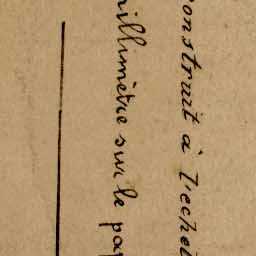 onstruit à l'echel
illimètre sur le pap